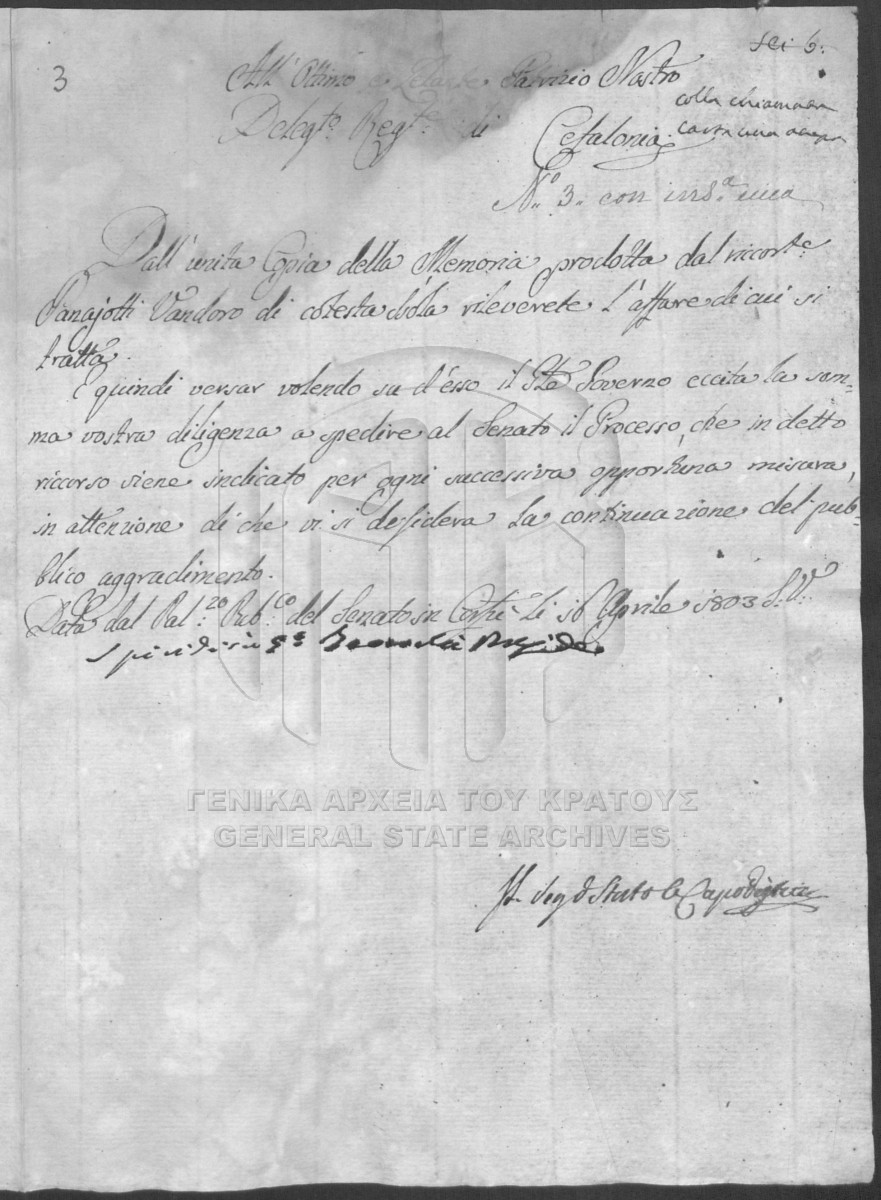 sei 6.
3
All' Ottimo e Zelante Patrizio Nostro
Delegto. Reggte. di Cefalonia.
colla chiamata
carta una
No. 3. con inssa. una
Dall' unita Copia della Memoria prodotta dal riccorte.
Panajotti Vandoro di cotesta Isola rileverete l'affare di cui si
tratta.
E quindi versar volendo su d'esso il Gle Governo eccita la som-
ma vostra diligenza a spedire al Senato il Processo, che in detto
riccorso viene indicato per ogni successiva opportuna misura,
in attenzione di che vi si desidera la continuazione del pub-
blico aggradimento.
Data dal Palzo. Pubco. del Senato in Corfù li 16 Aprile 1803 S.V.
Spiridion
ΓΕΝΙΚΑ ΑΡΧΕΙΑ ΤΟΥ ΚΡΑΤΟΥΣ
GENERAL STATE ARCHIVES
Il Seg d Stato Capodistria